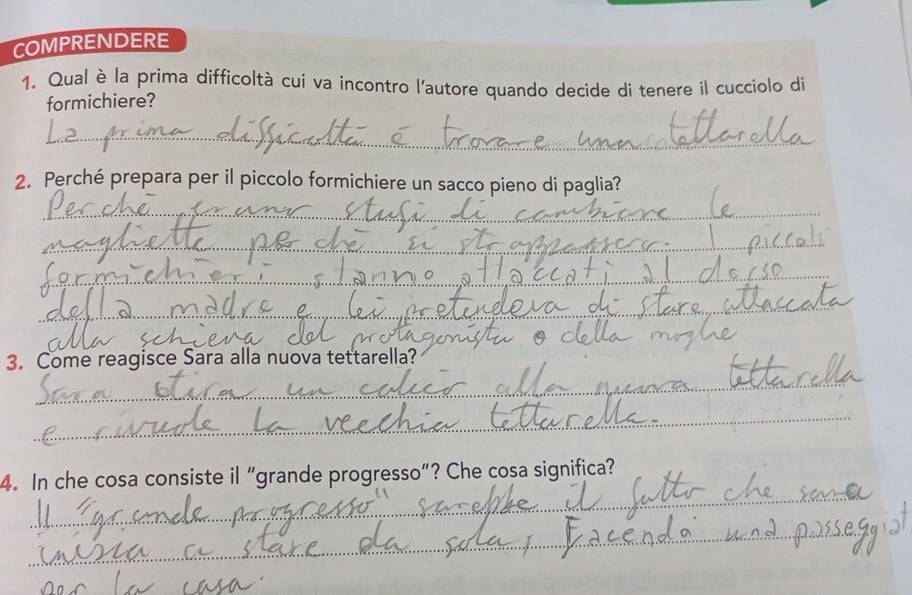 COMPRENDERE
1. Qual è la prima difficoltà cui va incontro l'autore quando decide di tenere il cucciolo di
formichiere?
La prima difficoltà è trovare una tettarella
2. Perché prepara per il piccolo formichiere un sacco pieno di paglia?
Perché erano stufi di cambiare le
magliette perché si strappassero. I piccoli
formichieri stanno attaccati al dorso
della madre e lei pretendeva di stare attaccata
alla schiena del protagonista o della moglie
3. Come reagisce Sara alla nuova tettarella?
Sara tira un calcio alla nuova tettarella
e rivuole la vecchia tettarella.
4. In che cosa consiste il "grande progresso"? Che cosa significa?
Il "grande progresso" sarebbe il fatto che sara
inizia a stare da sola, Facendo una passeggiat
per la casa.